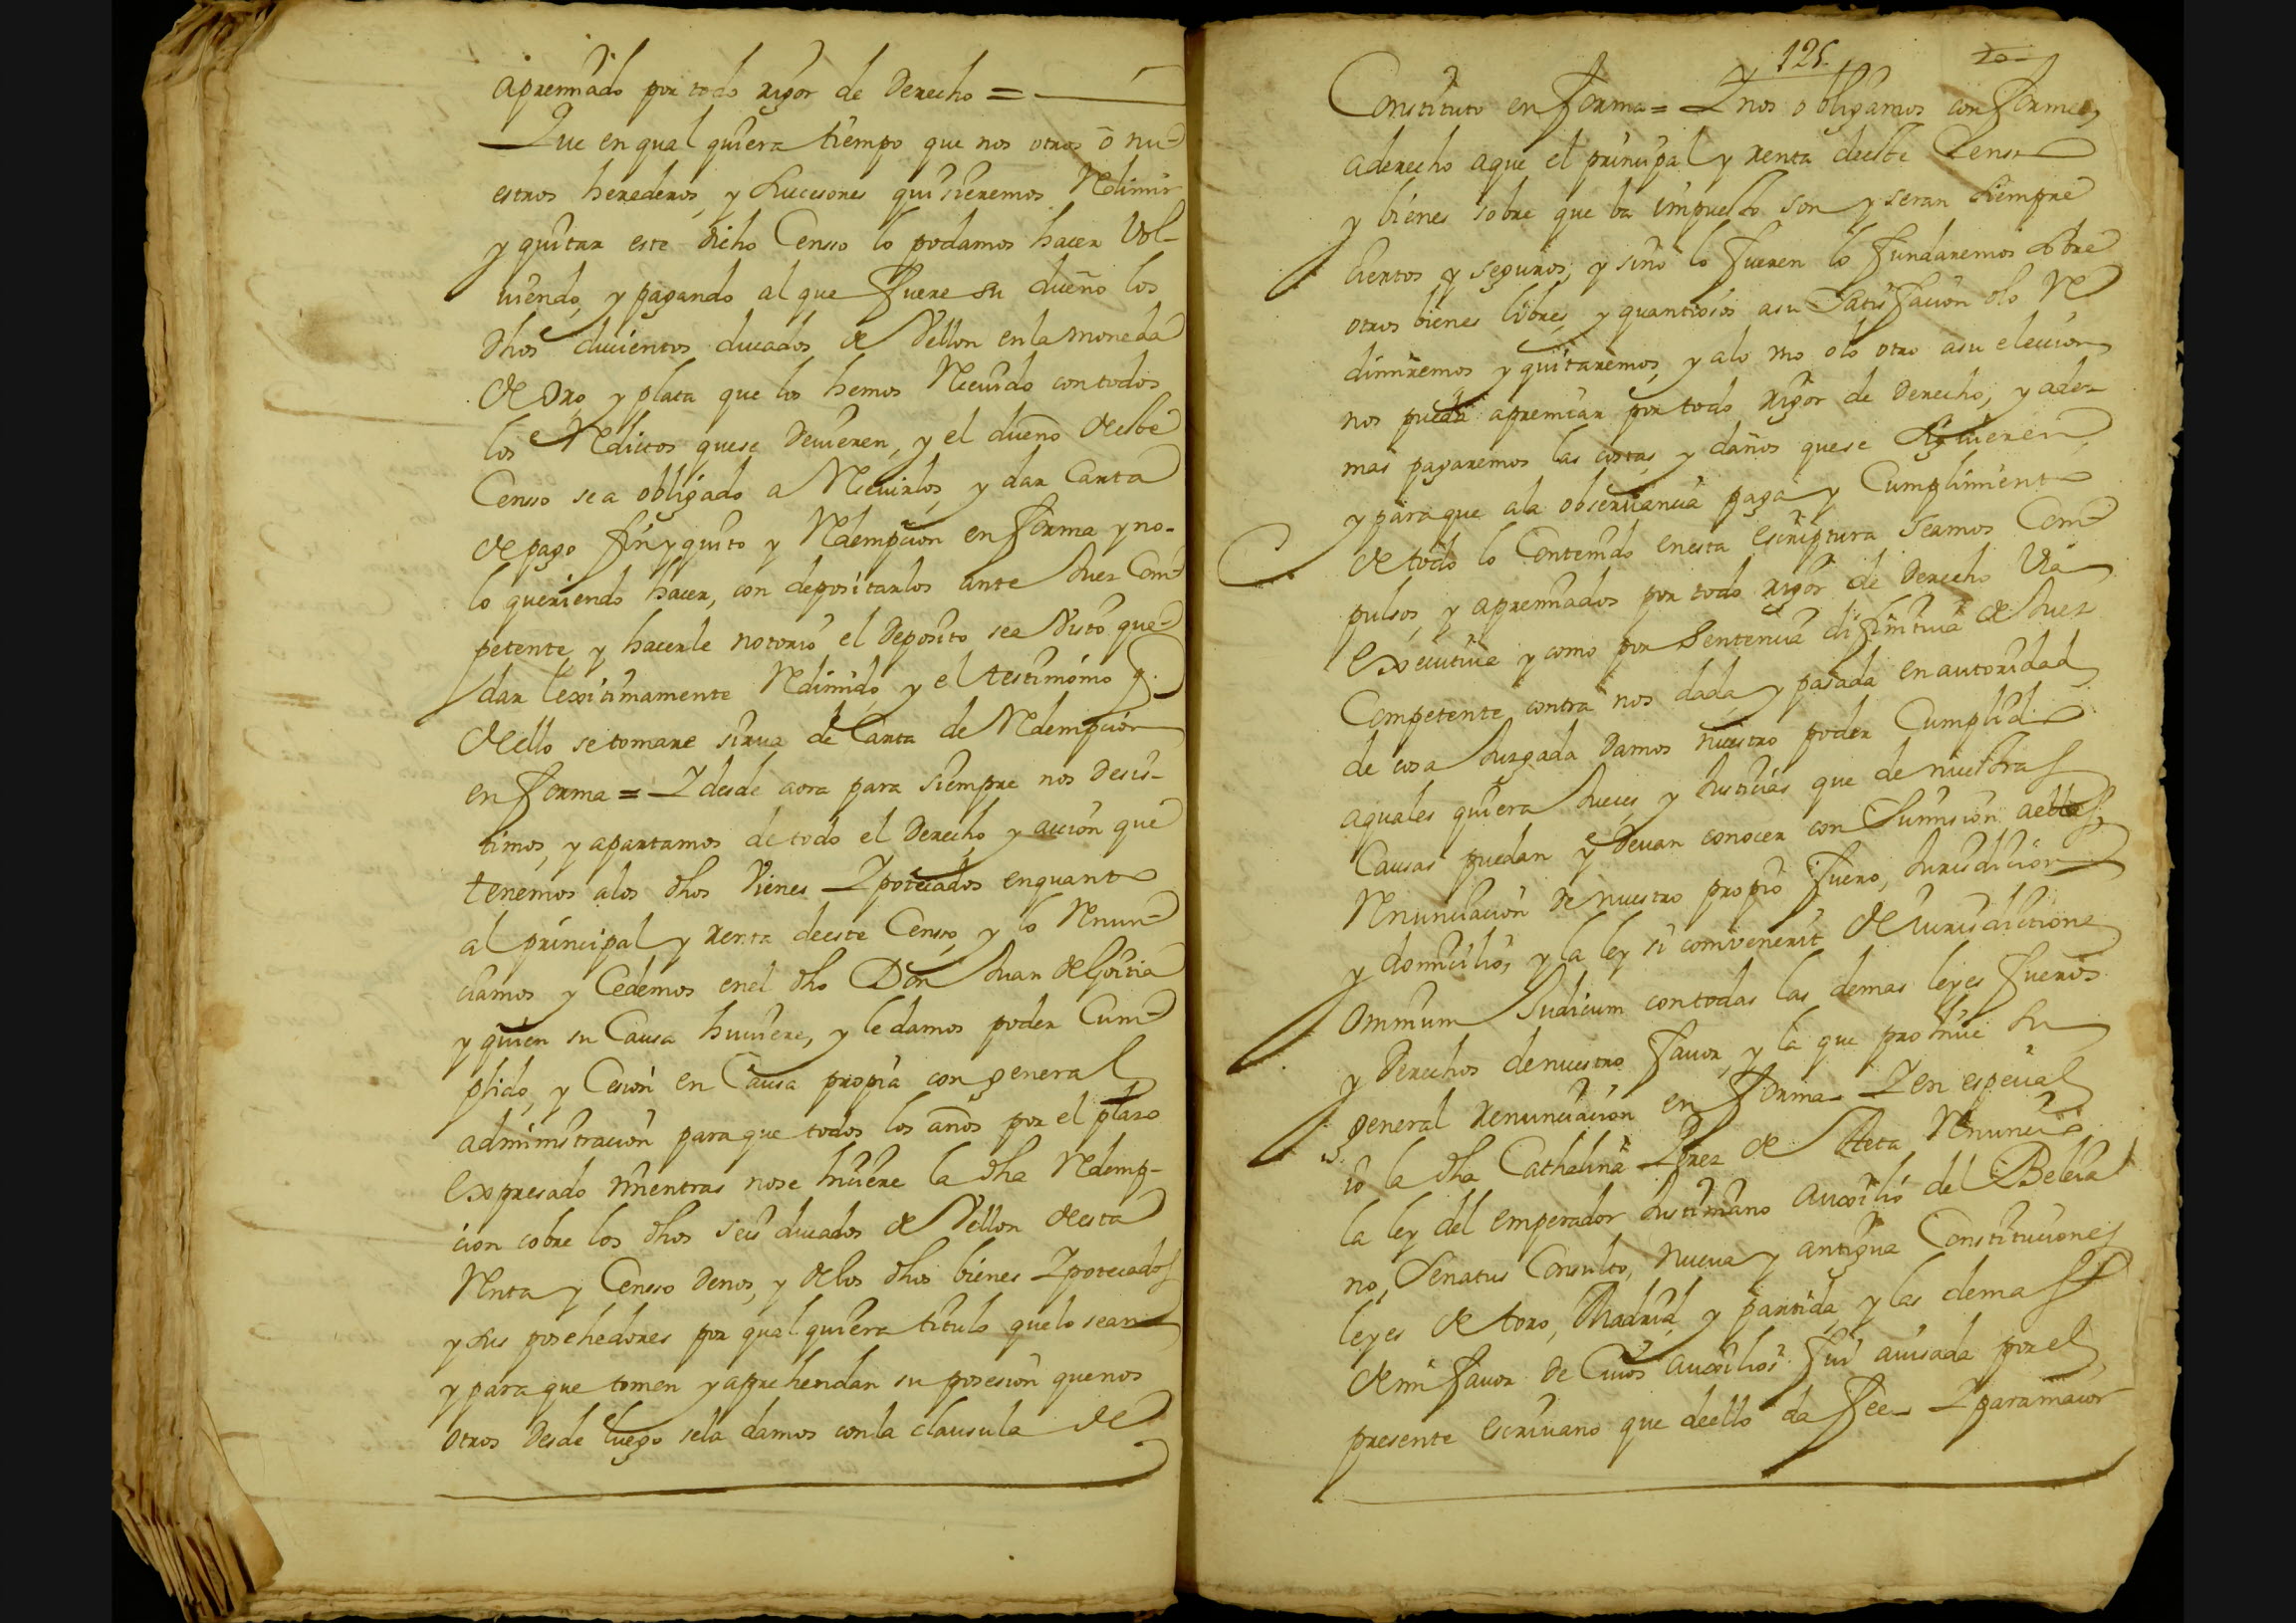 apremiado por todo rigor de Derecho =
Que en qual quiera tiempo que nos otros ò nu-
estros herederos, y Sucesores quisieremos Redimir
y quitar este dicho Censso lo podamos hacer Vol-
uiendo, y pagando al que fuere su dueño los
dhos ducientos ducados de Vellon en la moneda
de Oro y plata que los hemos Reciuido con todos
los Reditos que se deuieren, y el dueño de este
Censso sea obligado a Reciuirlos, y dar Carta
de pago fin y quito y Redempcion en forma y no-
lo queriendo hacer, con depositarlos ante Juez Com-
petente, y hacerle notorio el Deposito sea Visto que-
dar lexitimamente Redimido, y el testimonio q.
de ello se tomare sirua de Carta de Redempcion
en forma = I desde aora para siempre nos desis-
timos, y apartamos de todo el Derecho, y accion que
tenemos a los dhos Vienes Ipotecados en quanto
al principal y renta de este Censso, y lo Renun-
ciamos y Cedemos en el dho Don Juan de Goitia
y quien su Causa huuiere, y le damos poder Cum-
plido, y Cesion en Causa propia con general
administracion para que todos los años por el plazo
expresado mientras no se hiziere la dha Redemp-
cion cobre los dhos seis ducados de Vellon de esta
Renta y Censso de nos, y de los dhos bienes Ipotecados
y sus posehedores por qual quiera titulo que lo sean
y para que tomen y aprehendan su posesion que nos
otros desde luego se la damos con la clausula de
125.
Constituto en forma = I nos obligamos conforme
a derecho a que el principal y renta de este Censo
y bienes sobre que ba impuesto son y seran siempre
Ciertos y seguros, y sino lo fueren lo fundaremos sobre
otros bienes libres, y quantiosos a su Satisfacion o lo Re
dimiremos y quitaremos, y a lo vno o lo otro a su eleccion
nos pueda apremiar por todo rigor de Derecho, y ade-
mas pagaremos las costas, y daños que se siguieren,
y para que a la obseruancia paga y Cumplimiento
de todo lo Contenido en esta escriptura seamos Com-
pulsos, y apremiados por todo rigor de Derecho Via
executiua y como por Sentencia difinitiua de Juez
Competente contra nos dada, y pasada en autoridad
de cosa Juzgada Damos nuestro poder Cumplido
a quales quiera Jueces, y Justicias que de nuestras
Causas puedan y Deuan conocer con Sumision a ellas,
Renunciacion de nuestro propio fuero, Jurisdicion
y domicilio, y la ley si convenerit de iurisdictione
omnium Iudicum con todas las demas leyes fueros
y Derechos de nuestro fauor, y la que prohiue su
general renunciacion en forma- I en especial
io la dha Cathalina Perez de Renuncio
la ley del emperador Justiniano auxilio del Beleia
no, Senatus Consulto, nueua y antigua Constituciones
leyes de toro, Madrid, y partida, y las demas
de mi fauor de Cuios auxilios fui auisada por el
presente escriuano que de ello da fee- I para maior